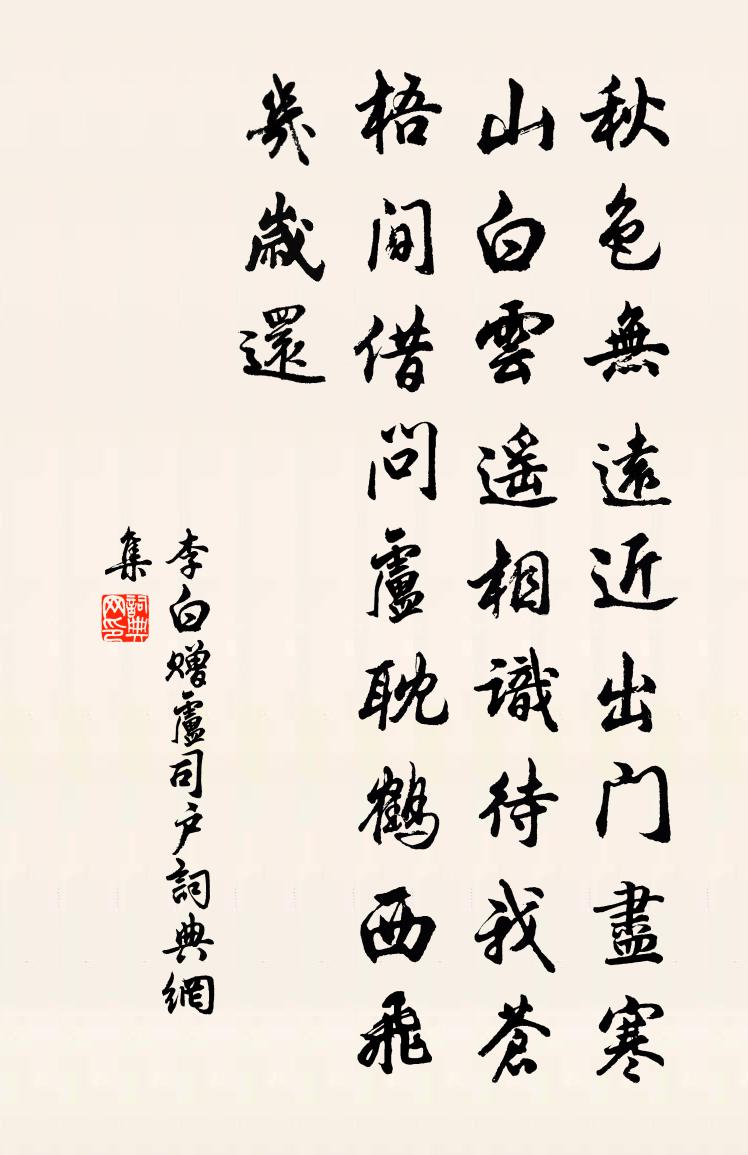 秋色無遠近出门盡寒
山白雲遥相識待我蒼
梧間借問盧耽鶴西飛
幾歲還
李白赠盧司户詞典網
集
詞典
网印